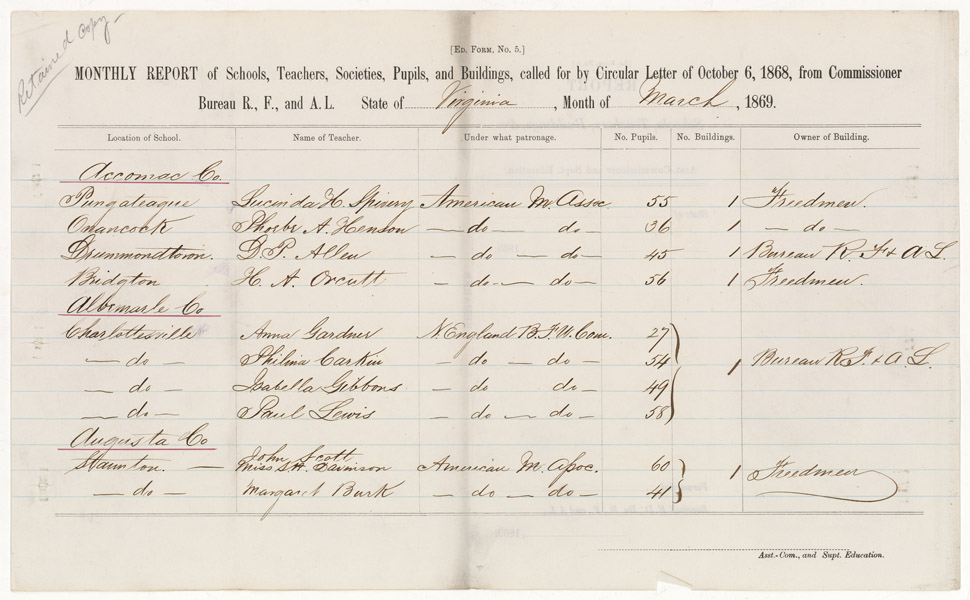 Retained copy
[Ed. Form, No. 5.]
MONTHLY REPORT of Schools, Teachers, Societies, Pupils, and Buildings, called for by Circular Letter of October 6, 1868, from Commissioner
Bureau R., F., and A. L. State of Virginia, Month of March, 1869.
Location of School. Name of Teacher. Under what patronage. No. Pupils. No. Buildings. Owner of Building.
Accomac Co.
Pungateague Lucinda H. Spivery American M. Assoc. 55 1 Freedmen.
Onancock Phoebe A. Henson — do — do — 36 1 — do —
Drummondtown. D. P. Allen — do — do — 45 1 Bureau R. F & A L.
Bridgton H. A. Orcutt — do — do — 56 1 Freedmen.
Albemarle Co
Charlottesville Anna Gardner N. England B. F. U. Com. 27
— do — Philina Carkin — do — do — 54 1 Bureau R F. & A. L.
— do — Isabella Gibbons — do do — 49
— do — Paul Lewis — do — do — 58
Augusta Co
John Scott
Staunton. — Miss S. H. Davinson American M. Assoc. 60 1 Freedmen
— do — Margaret Burk — do — do — 41
Asst.-Com., and Supt. Education.